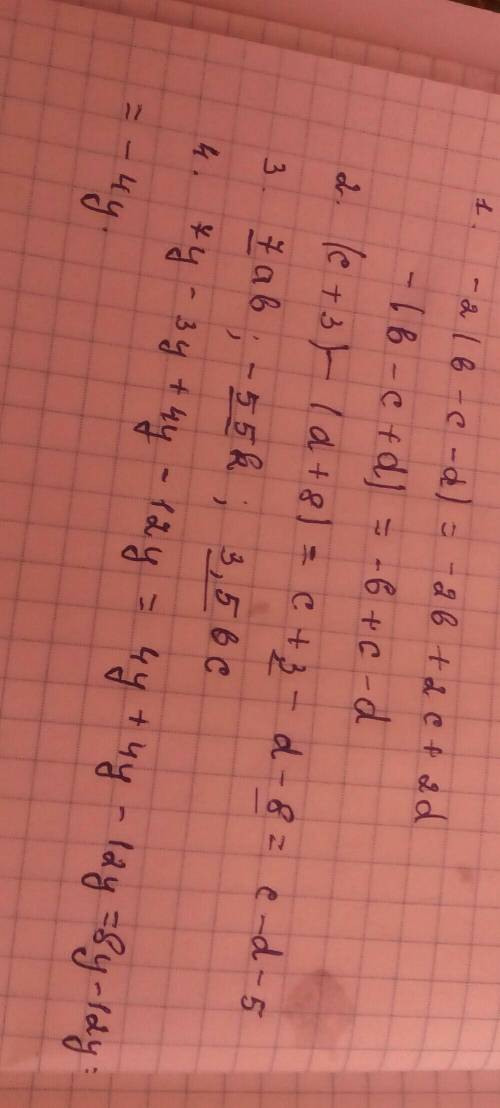 1. -2(b-c-d) = -2b+2c+2d
-(b-c+d) = -b+c-d
2. (c+3)-(d+8) = c+3-d-8 = c-d-5
3. 7ab; -55k; 3,5bc
4. 7y-3y+4y-12y = 4y+4y-12y = 8y-12y =
= -4y.